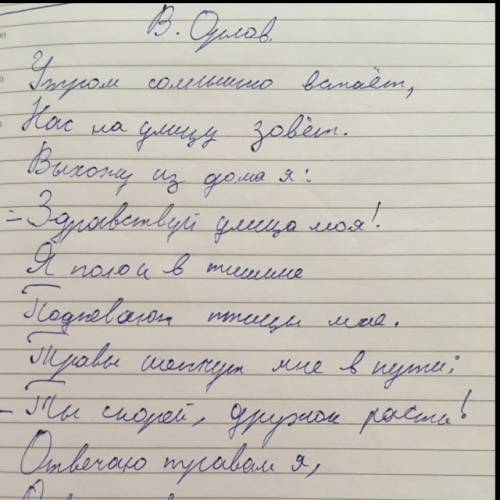 В. Орлов.
Утром солнышко встаёт,
Нас на улицу зовёт.
Выхожу из дома я:
= Здравствуй улица моя!
Я пою и в тишине
Подпевают птицы мне.
Травы шепчут мне в пути:
- Ты скорей, дружок расти!
Отвечаю травам я,